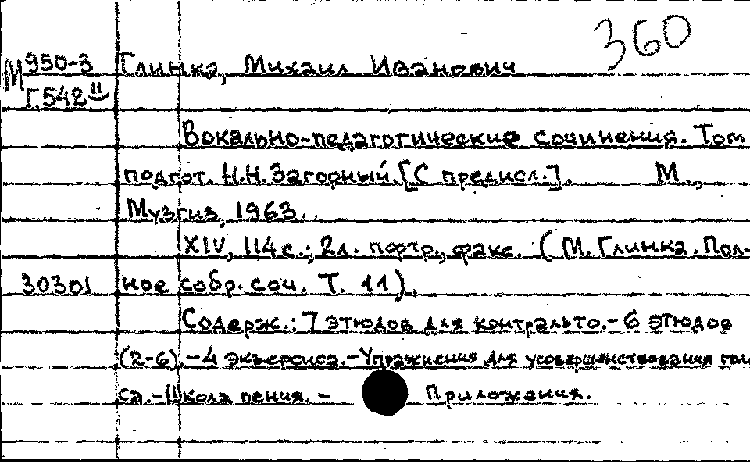 360
М 950-3 Глинка, Михаил Иванович
Г.542 II
Вокально-педагогические сочинения. Том
подгот. Н.Н. Загорный. [С предисл.]. М.,
Музгиз, 1963.
XIV, 114 с.; 2 л. портр., факс. (М. Глинка. Пол-
30301 ное собр. соч. Т. 11).
Содерж.: 7 этюдов для контральто. - 6 этюдов
(2-6). - 4 экзерсиса. - Упражнения для усовершенствования голо
са. - Школа пения. - Приложения.